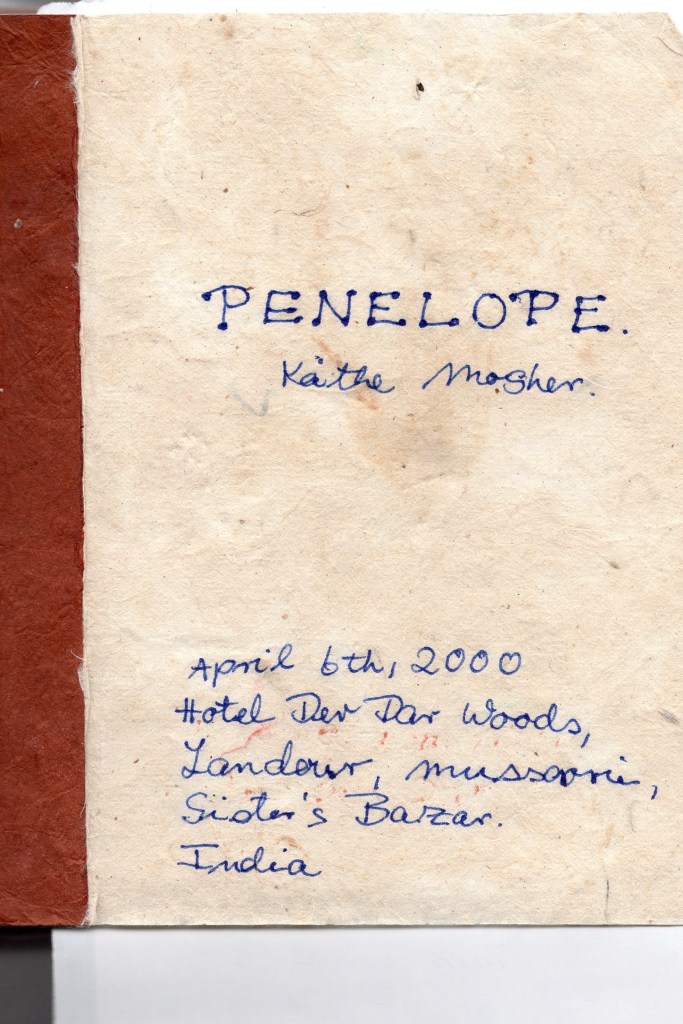 PENELOPE.
Käthe Mosher.
April 6th, 2000
Hotel Dev Dar Woods,
Landour, Mussoorie,
Sister's Bazar.
India